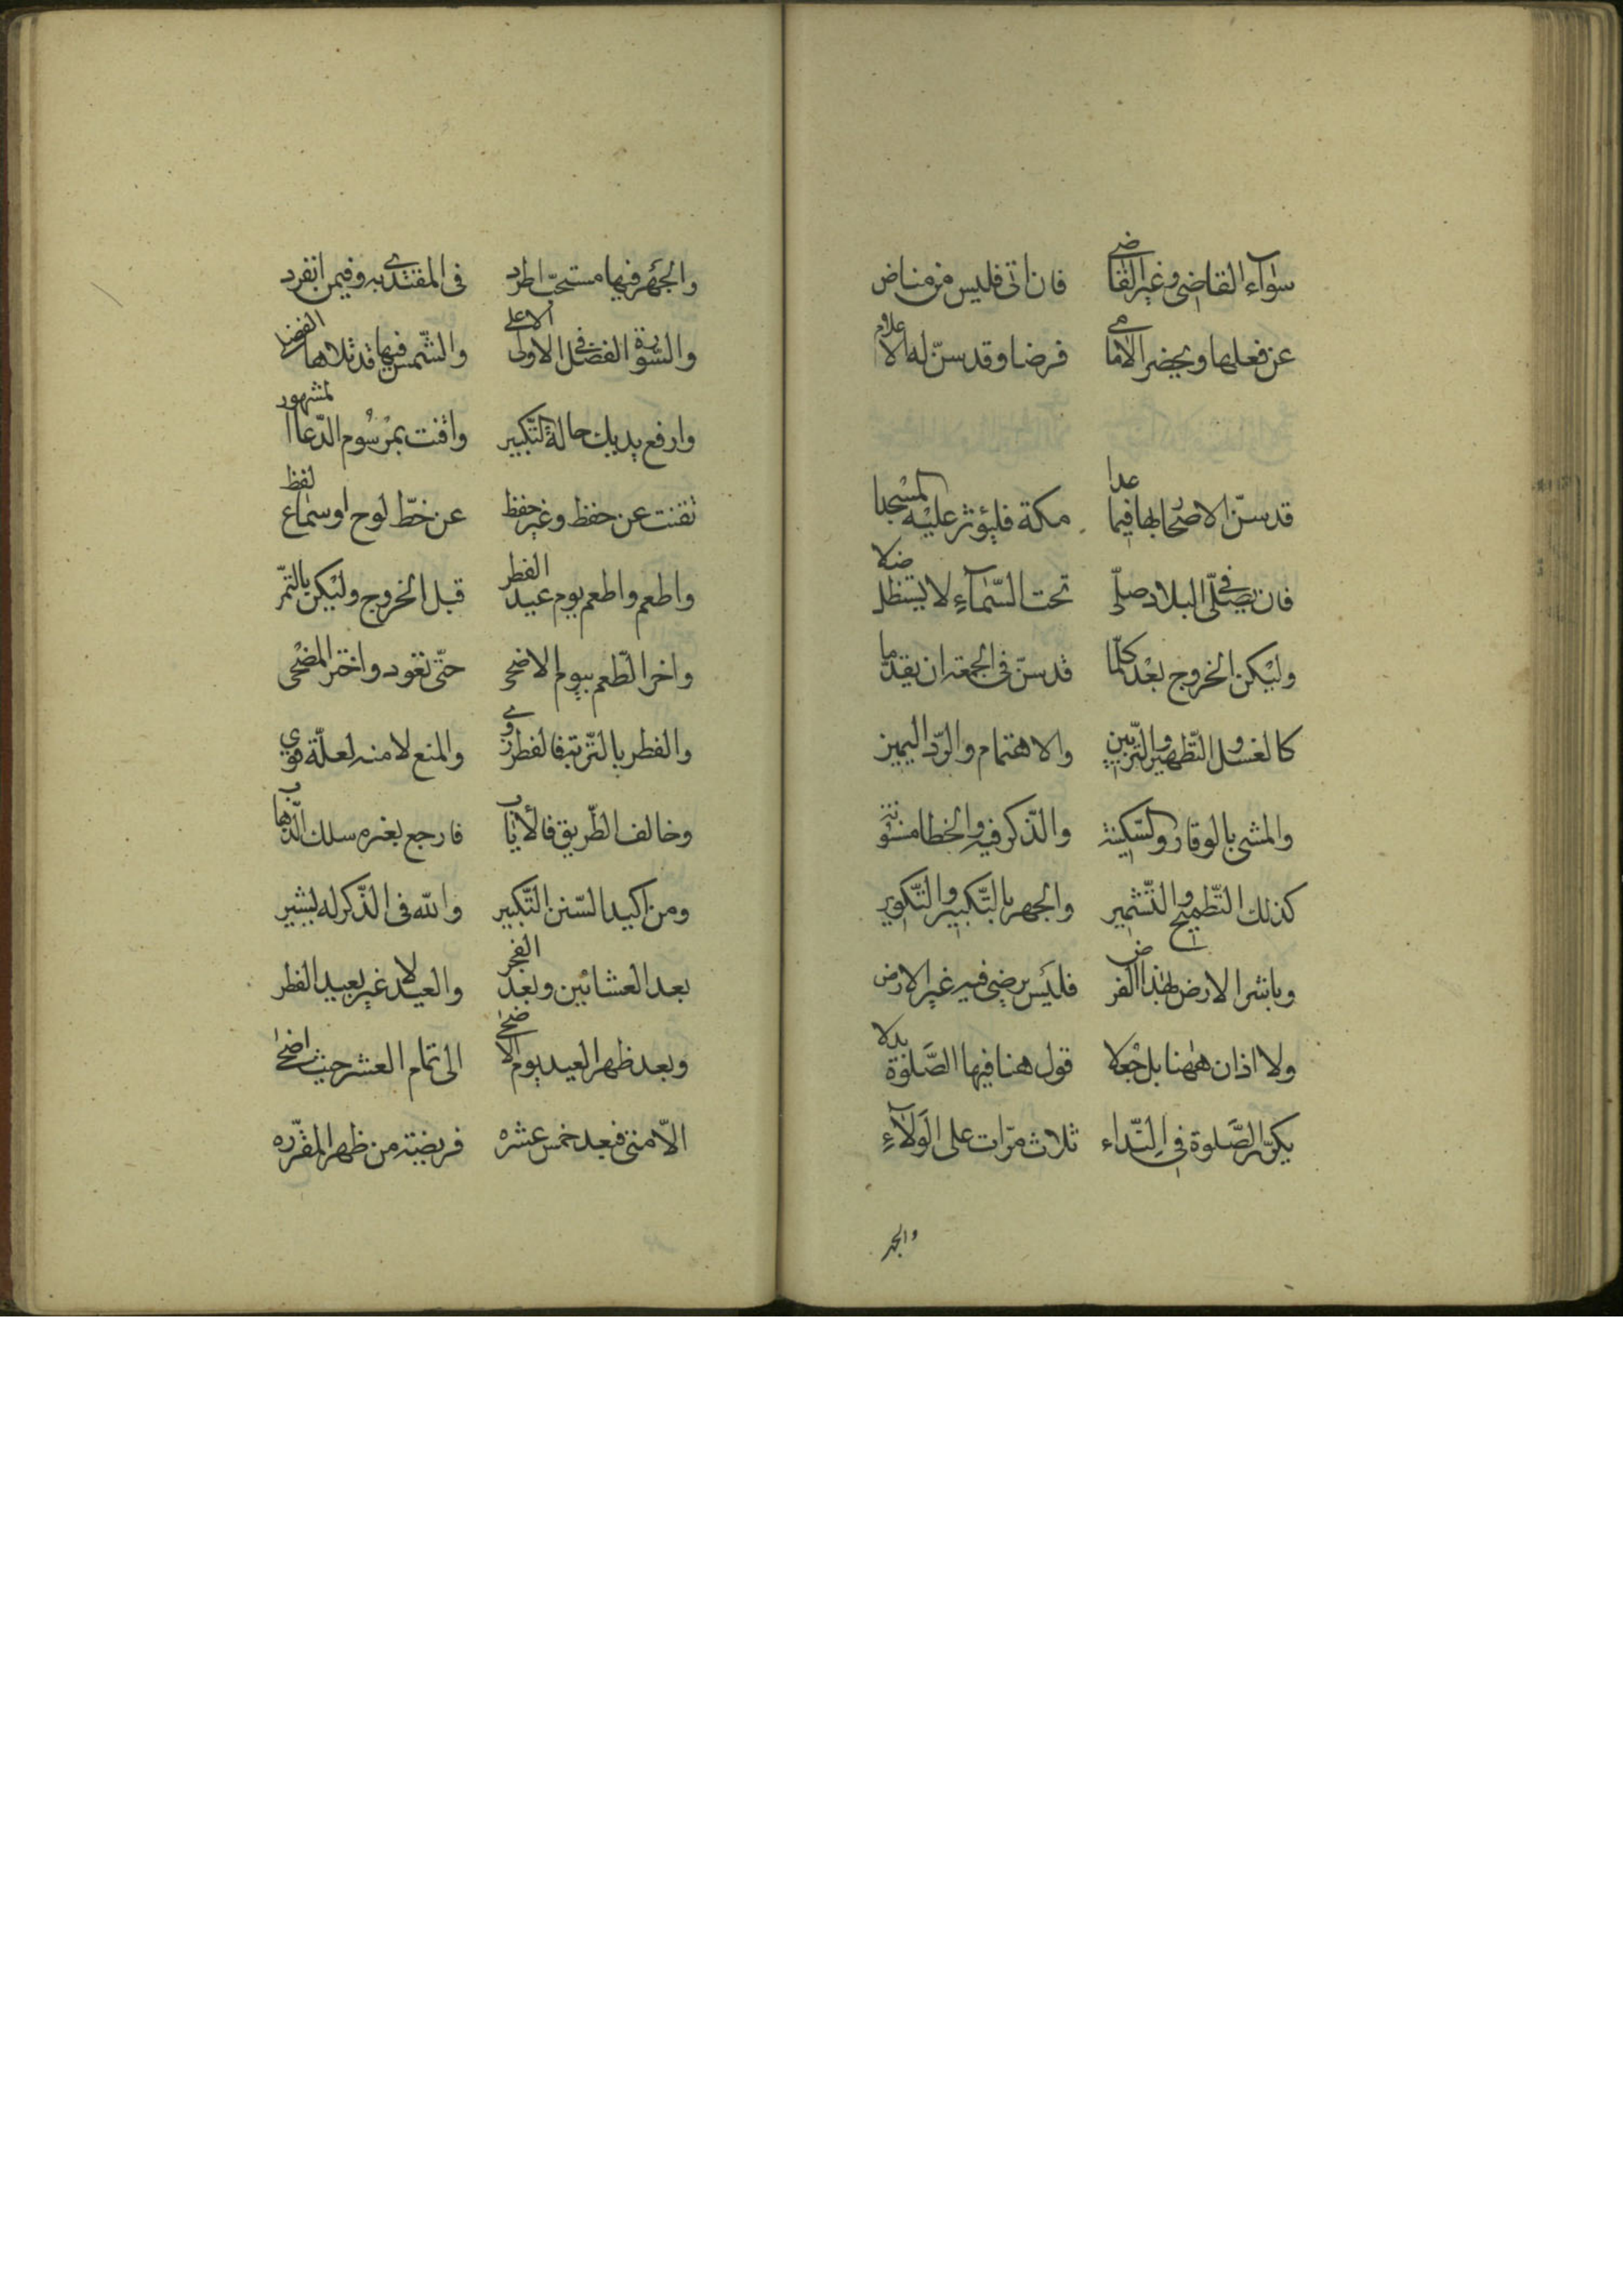 سوآء القاضى وغير القاضى فان اتى فليس من مناض
عن فعلها ويحضر الامامى فرضا وقد سنّ له الاعلام
قد سنّ الاصحار بها فيما عدا مكة فليؤثر عليه المسجدا
فان يصلّى فى البلاد صلّى تحت السّمآء لا يستظل ضلا
وليكن الخروج بعد كلّما قد سنّ فى الجمعة ان يقدّما
كالغسل والتّطهير والتزيين والاهتمام والرّد اليمين
والمشى بالوقار والسّكينة والذّكر فيه والخطا
كذلك والتّشمير والجهر بالتّكبير والتّكوير
وباشر الارض بهذا الفرض فليس يرضى فيه غير الارض
ولا اذان ههنا بل جعلا قول هنا فيها الصّلوة بدلا
يكرّر الصّلوة فى النّداء ثلاث مرّات على الولآء
والجهر
والجهر فيها مستحبّ اطرد فى المقتدى به وفيمن انفرد
والسّورة الفضلى فى الاولى الاعلى والشّمس فيها قد تلاها الفضلا
وارفع يديك حالة التّكبير واقنت بمرسوم الدّعا المشهور
تقنت عن حفظ وغير حفظ عن خطّ لوح او سماع لفظ
واطعم واطعم يوم عيد الفطر قبل الخروج وليكن بالتّمر
واخر الطّعم بيوم الاضحى حتّى تعود واختر المضحى
والفطر بالتّربة فالفطر روى والمنع لا منه لعلّة قوى
وخالف الطّريق فالأياب فارجع بغير مسلك الذّهاب
ومن اكيد السّنن التّكبير والله فى الذّكر له يشير
بعد العشائين وبعد الفجر والعيد لا غير بعيد الفطر
وبعد ظهر العيد يوم الاضحى الى تمام العشر حيث اضحى
الّا منى فبعد خمس عشره فريضة من ظهر المقرّره